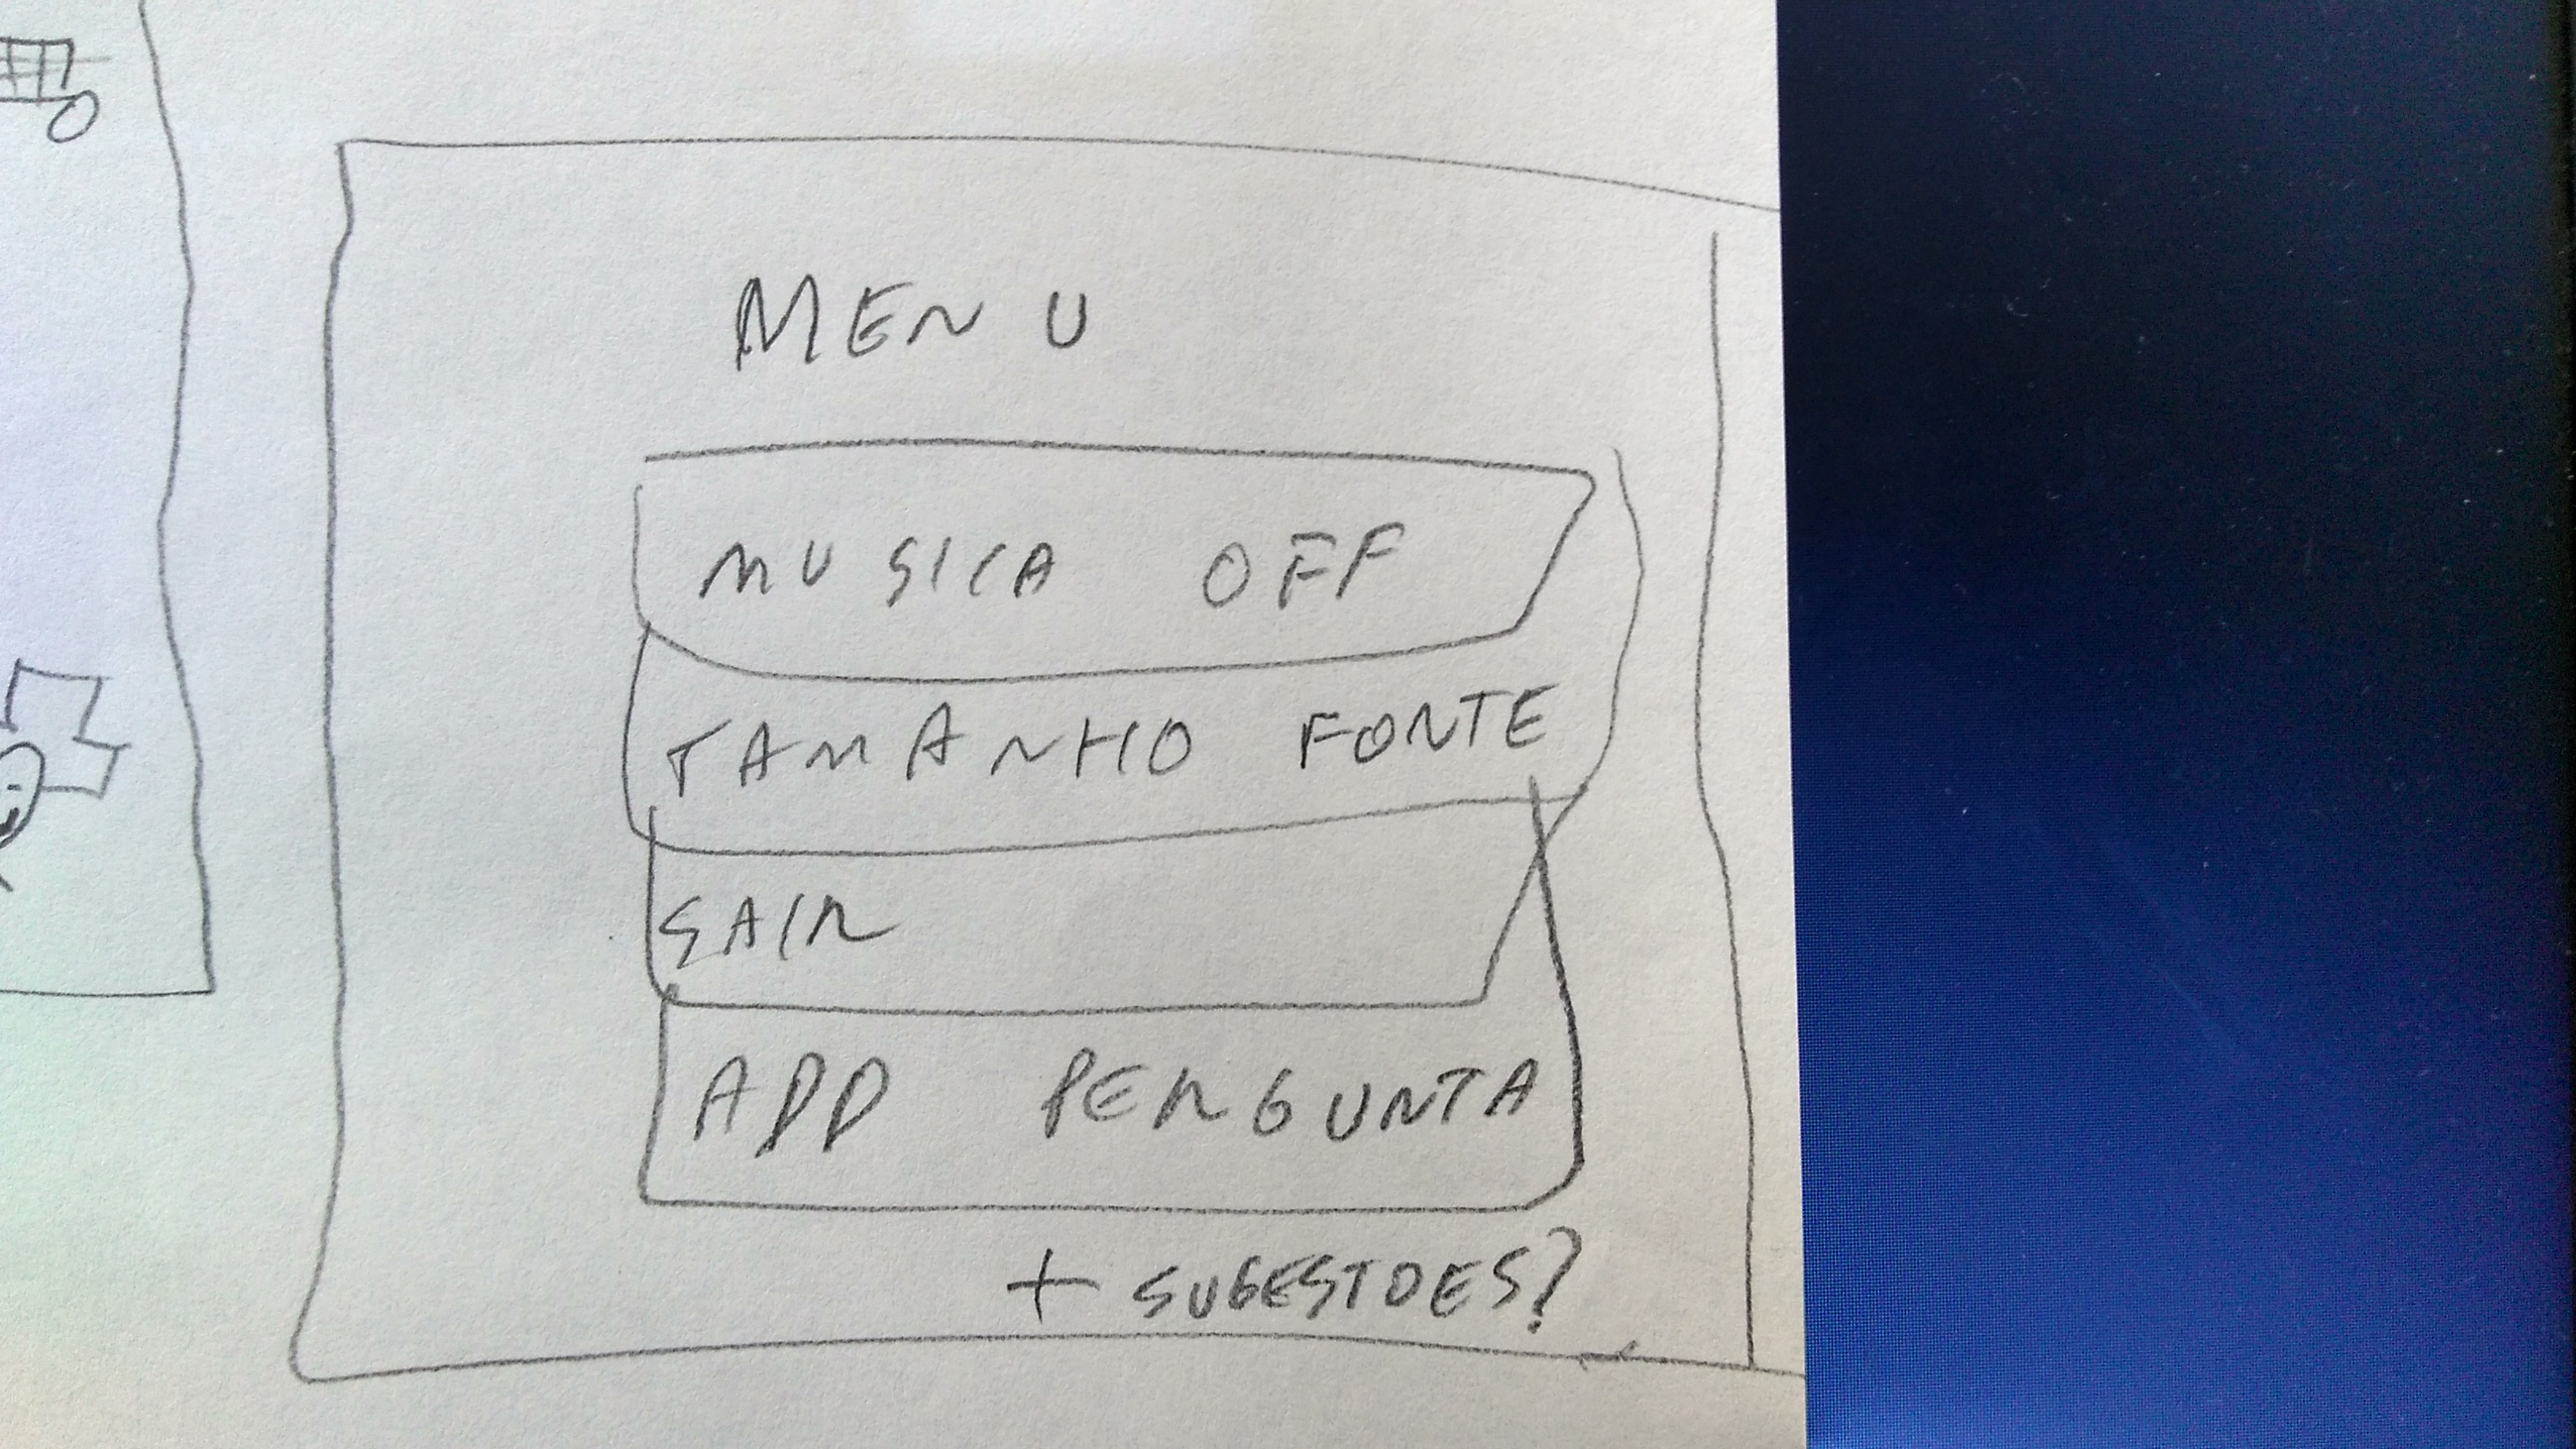 MENU
MUSICA OFF
TAMANHO FONTE
SAIR
ADD PERGUNTA
+ SUGESTOES?